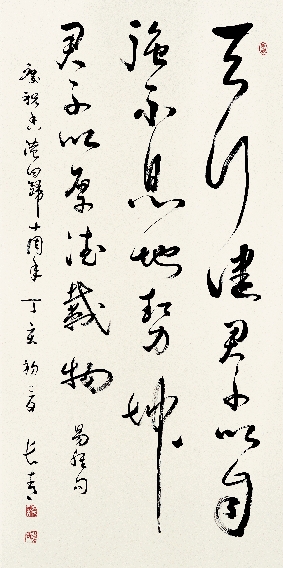 天行健君子以自
强不息地势坤
君子以厚德载物
易经句
庆祝香港回归十周年丁亥初夏长青